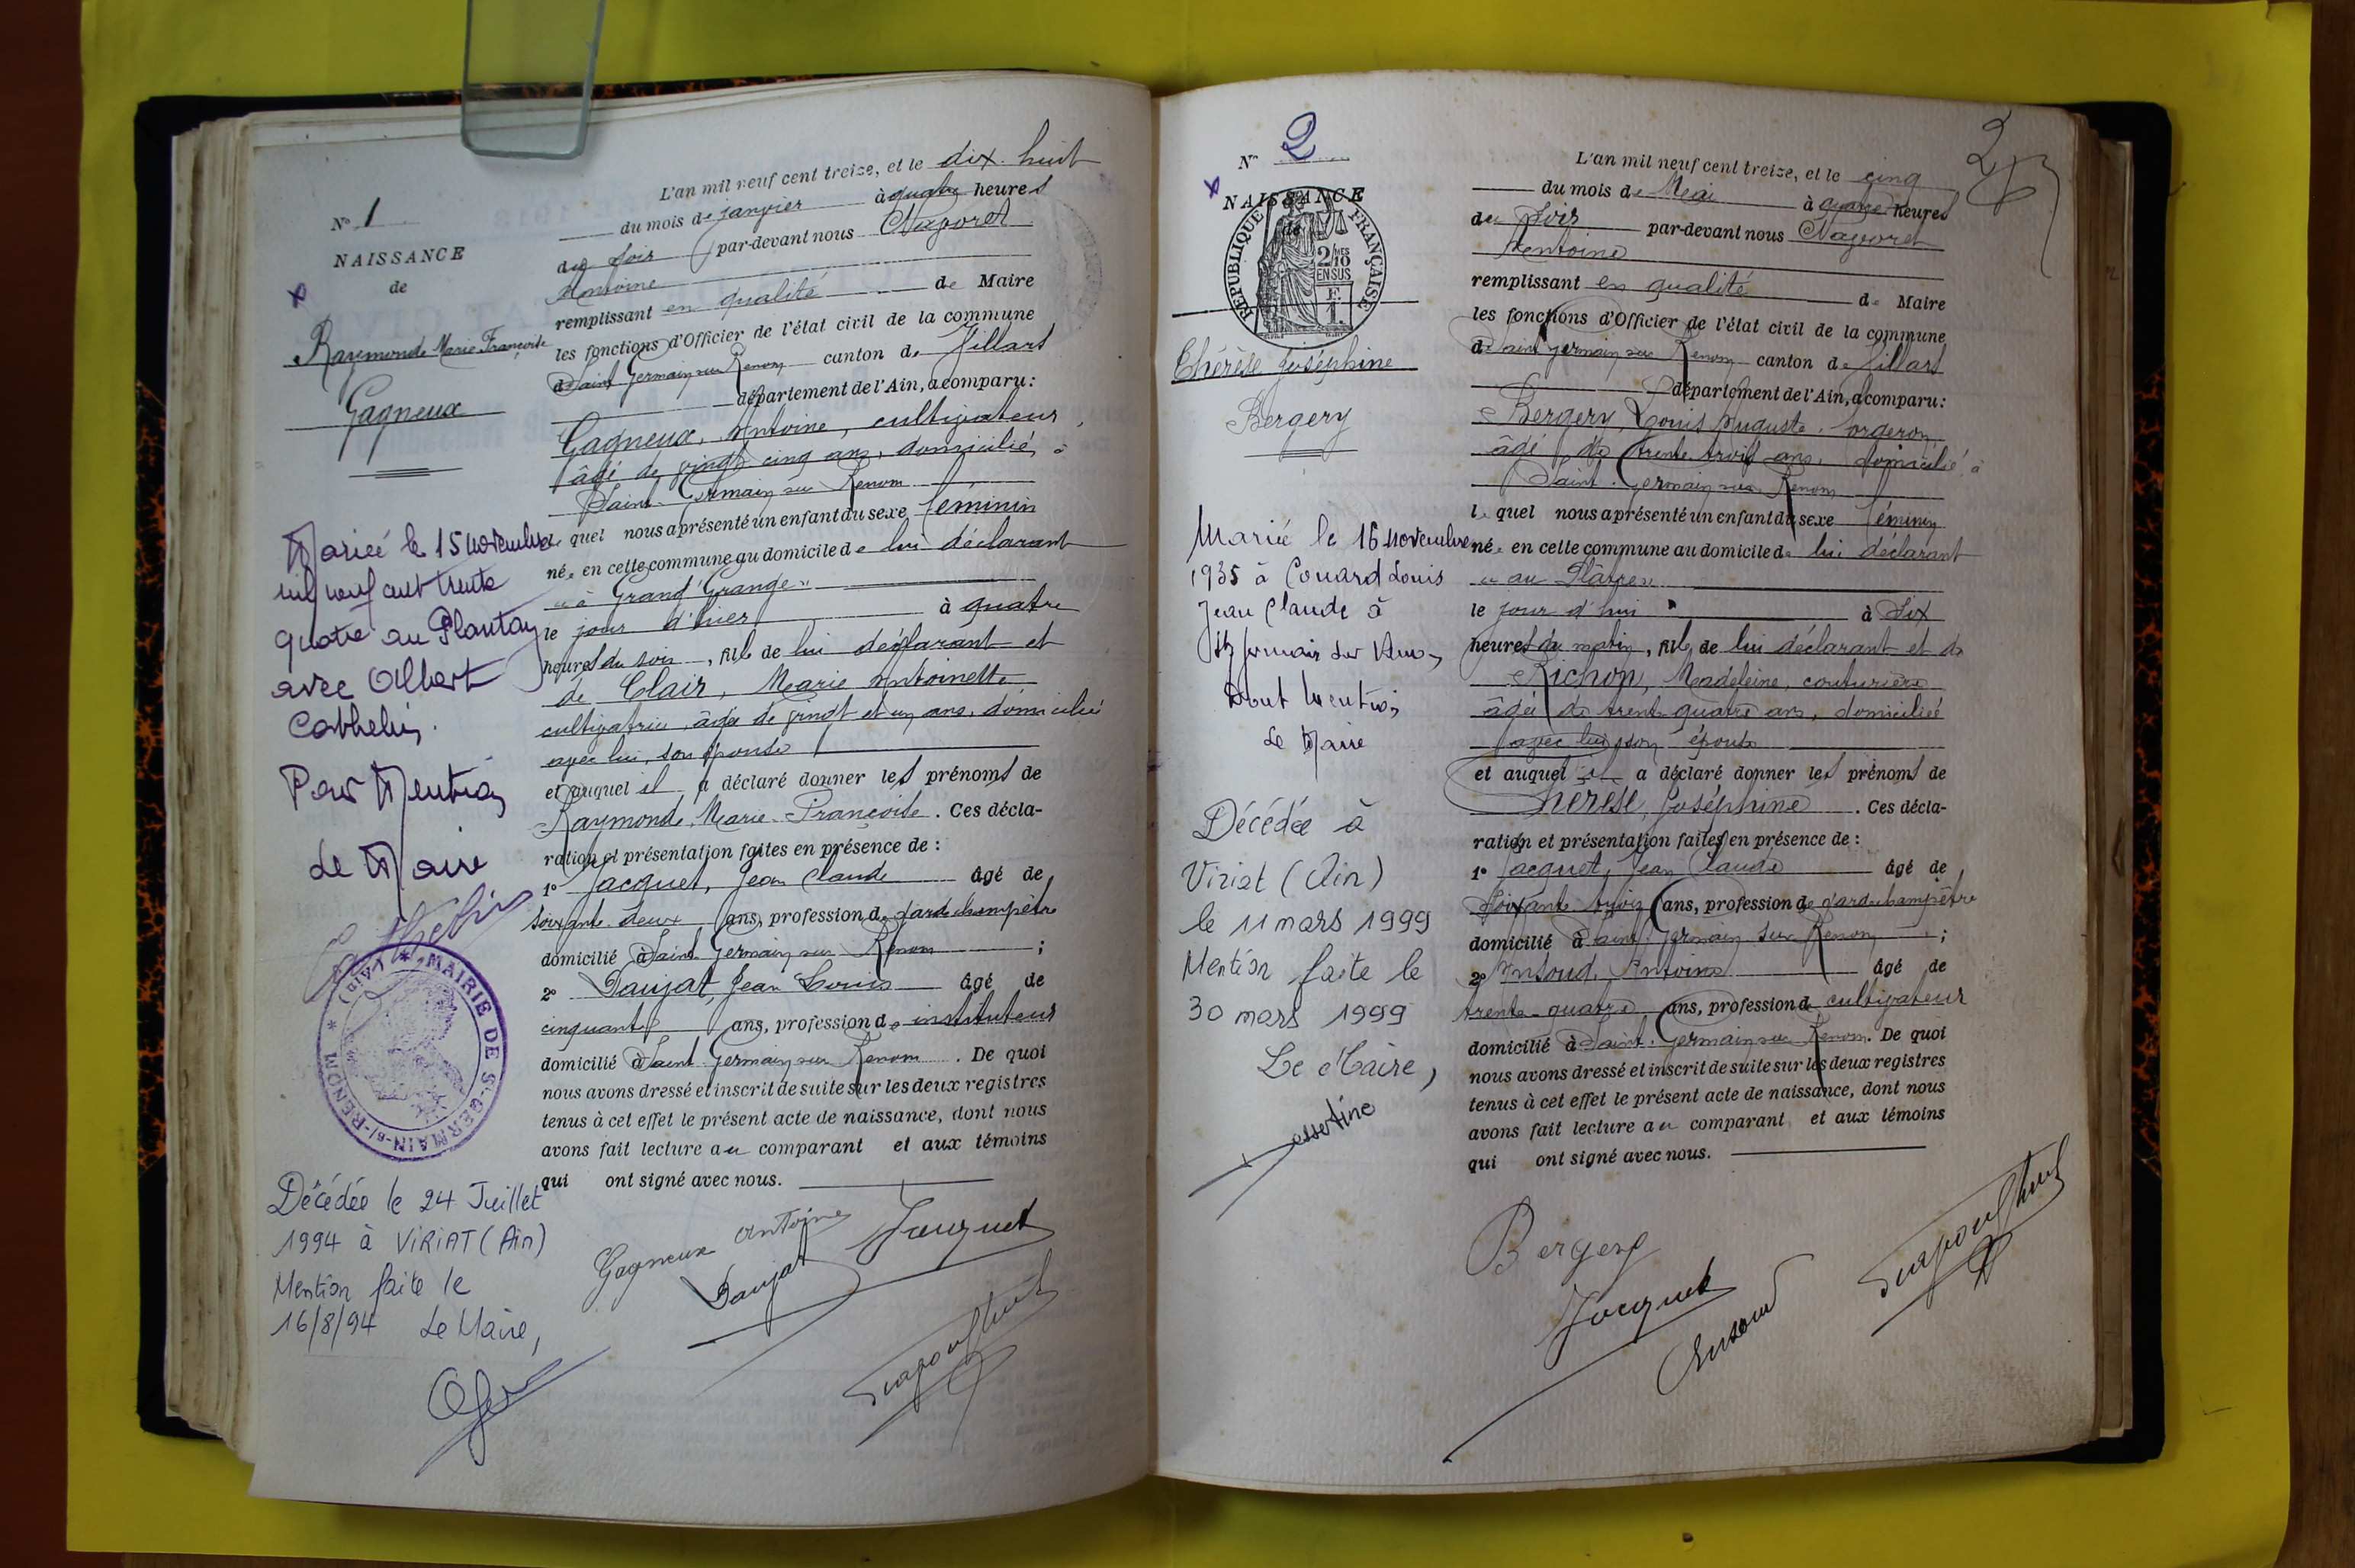 N° 1
NAISSANCE
de
Raymonde Marie Françoise
Gagneux
Mariée le 15 novembre
mil neuf cent trente
quatre au Plantay
avec Albert
Cathelin.
Pour Mention
Le Maire
MAIRIE DE St-GERMAIN-s/-RENOM * (AIN) *
Décédée le 24 Juillet
1994 à VIRIAT (Ain)
Mention faite le
16/8/94 Le Maire,
L'an mil neuf cent treize, et le dix-huit
du mois de janvier à quatre heures
du soir par-devant nous
Antoine
remplissant en qualité de Maire
les fonctions d'Officier de l'état civil de la commune
de Saint Germain sur Renom canton de Villars
département de l'Ain, a comparu :
Gagneux, Antoine, cultivateur
âgé de vingt cinq ans, domicilié à
Saint Germain sur Renom
lequel nous a présenté un enfant du sexe féminin
née en cette commune au domicile de lui déclarant
"à Grand'Grange"
le jour d'hier à quatre
heures du soir, fille de lui déclarant et
de Clair, Marie Antoinette
cultivatrice, âgée de vingt et un ans, domiciliée
avec lui, son épouse
et auquel il a déclaré donner les prénoms de
Raymonde, Marie Françoise. Ces décla-
ration et présentation faites en présence de :
1° Jacquet, Jean Claude âgé de
soixante deux ans, profession de garde champêtre
domicilié à Saint Germain sur Renom ;
2° Daujat, Jean Louis âgé de
cinquante ans, profession de instituteur
domicilié à Saint Germain sur Renom. De quoi
nous avons dressé et inscrit de suite sur les deux registres
tenus à cet effet le présent acte de naissance, dont nous
avons fait lecture au comparant et aux témoins
qui ont signé avec nous.
Gagneux Antoine Jacquet
Daujat
2
N° 2
NAISSANCE
de
REPUBLIQUE FRANÇAISE
2/10 MES
EN SUS
F.
1.
Thérèse Joséphine
Bergery
Mariée le 16 novembre
1935 à Couard Louis
Jean Claude à
St Germain sur Renon
Dont Mention
Le Maire
Décédée à
Viriat (Ain)
le 11 mars 1999
Mention faite le
30 mars 1999
Le Maire,
L'an mil neuf cent treize, et le cinq
du mois de Mai à quatre heures
du soir par-devant nous
Antoine
remplissant en qualité de Maire
les fonctions d'Officier de l'état civil de la commune
de Saint Germain sur Renom canton de Villars
département de l'Ain, a comparu :
Bergery, Louis Auguste, forgeron
âgé de trente trois ans, domicilié à
Saint Germain sur Renom
lequel nous a présenté un enfant du sexe féminin
née en cette commune au domicile de lui déclarant
"au Plâtre"
le jour d'hui à dix
heures du matin, fille de lui déclarant et de
Richon, Madeleine, couturière
âgée de trente quatre ans, domiciliée
avec lui, son épouse
et auquel il a déclaré donner les prénoms de
Thérèse, Joséphine. Ces décla-
ration et présentation faites en présence de :
1° Jacquet, Jean Claude âgé de
soixante trois ans, profession de garde champêtre
domicilié à Saint Germain sur Renom ;
2° Ansoud, Antoine âgé de
trente-quatre ans, profession de cultivateur
domicilié à Saint Germain sur Renom. De quoi
nous avons dressé et inscrit de suite sur les deux registres
tenus à cet effet le présent acte de naissance, dont nous
avons fait lecture au comparant et aux témoins
qui ont signé avec nous.
Bergery
Jacquet
Ansoud